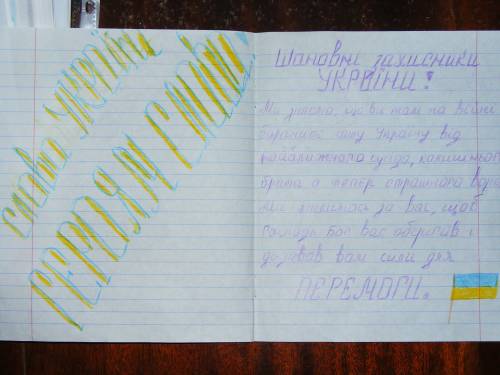 Слава УКРАЇНІ
ГЕРОЯМ СЛАВА!
Шановні захисники
УКРАЇНИ!
Ми знаємо, що ви там на війні
нашу Україну від
найближчого сусіда,
брата а тепер страшного
Ми молимось за вас, щоб
Господь Бог вас оберігав і
давав вам сили для
ПЕРЕМОГИ.